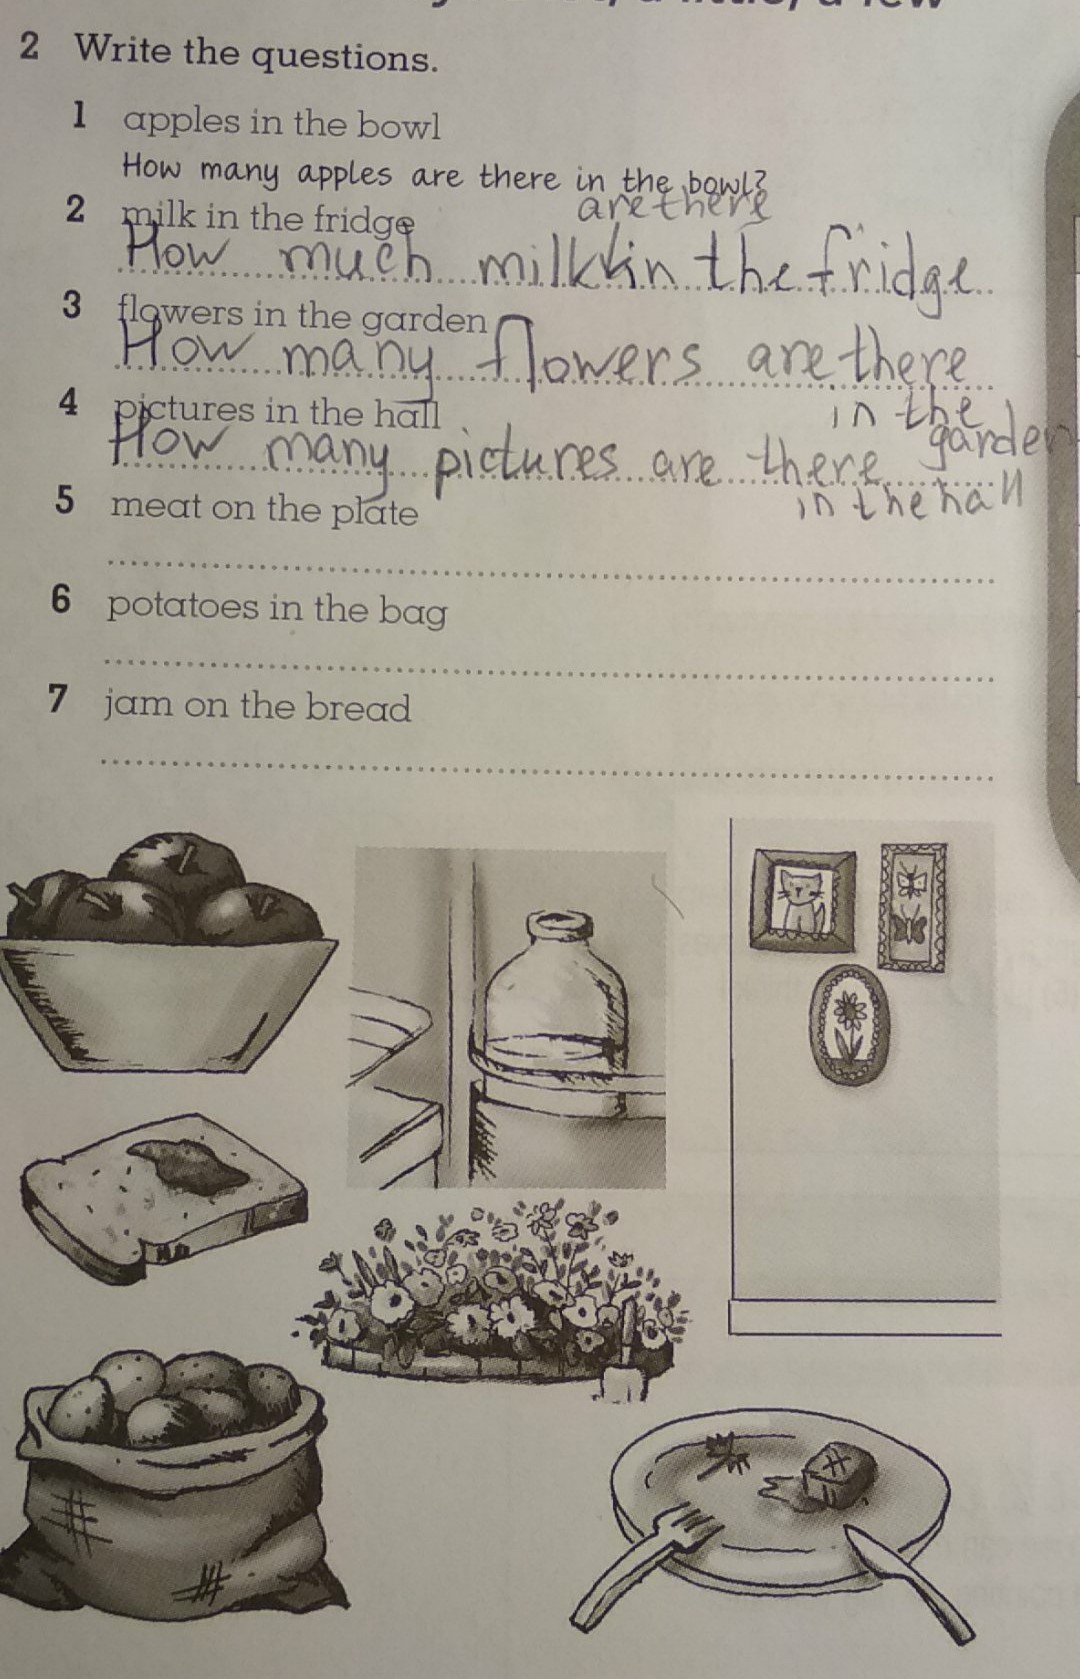 a little, a few
2 Write the questions.
1 apples in the bowl
How many apples are there in the bowl?
2 milk in the fridge
are there
How much milk in the fridge
3 flowers in the garden
How many flowers are there
in the
garden
4 pictures in the hall
How many pictures are there
in the hall
5 meat on the plate
6 potatoes in the bag
7 jam on the bread